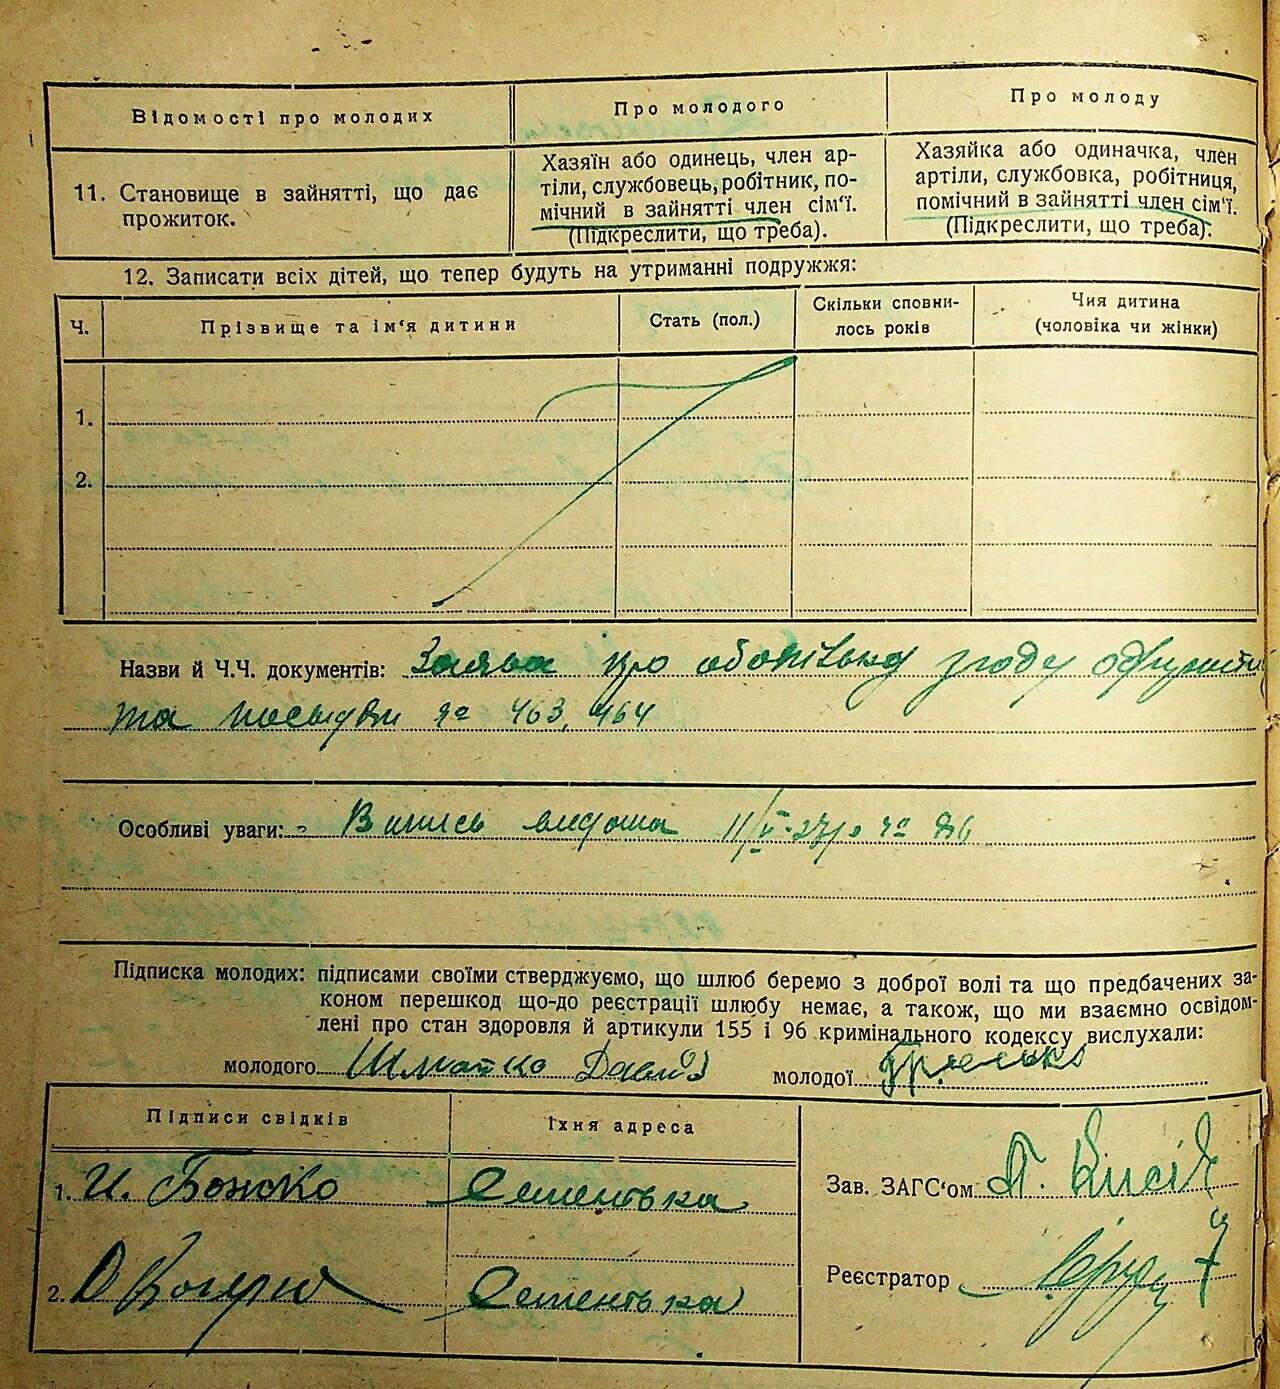 Відомості про молодих
Про молодого
Про молоду
11. Становище в зайнятті, що дає
прожиток.
Хазяїн або одинець, член ар-
тіли, службовець, робітник, по-
мічний в зайнятті член сім'ї.
(Підкреслити, що треба).
Хазяйка або одиначка, член
артіли, службовка, робітниця,
помічний в зайнятті член сім'ї.
(Підкреслити, що треба).
12. Записати всіх дітей, що тепер будуть на утриманні подружжя:
Ч.
Прізвище та ім'я дитини
Стать (пол.)
Скільки сповни-
лось років
Чия дитина
(чоловіка чи жінки)
1.
2.
Назви й Ч.Ч. документів: Заява про обопільну згоду
та посвідки № 463, 464
Особливі уваги: Випись видана
Підписка молодих: підписами своїми стверджуємо, що шлюб беремо з доброї волі та що предбачених за-
коном перешкод що-до реєстрації шлюбу немає, а також, що ми взаємно освідом-
лені про стан здоровля й артикули 155 і 96 кримінального кодексу вислухали:
молодого Шматко Давид молодої
Підписи свідків
Їхня адреса
1. И. Божко Семенівка
2. Семенівка
Зав. ЗАГС'ом
Реєстратор